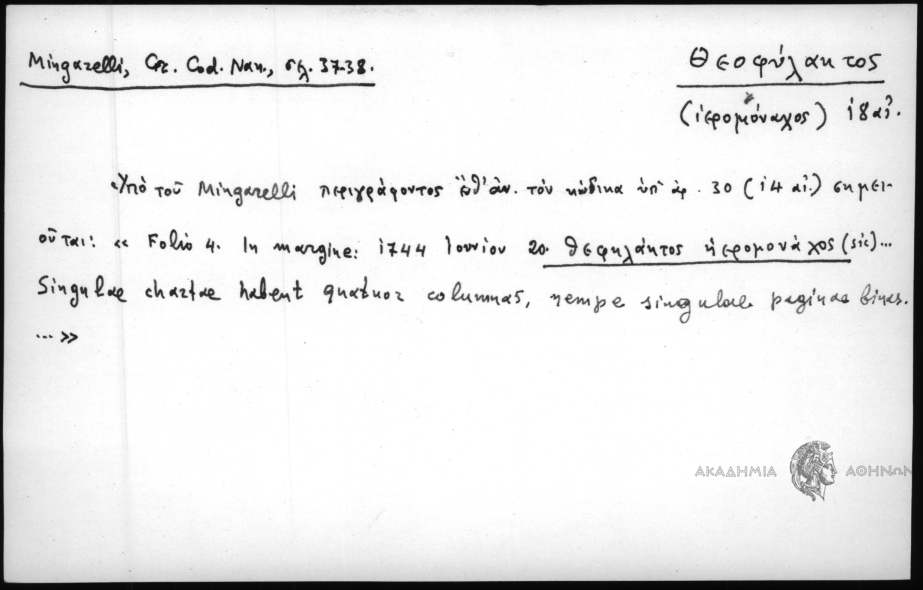 Mingarelli, Gr. Cod. Nan., σελ. 37-38.
Θεοφύλακτος
(ἱερομόναχος) ι8 αἰ.
Ὑπὸ τοῦ Mingarelli περιγράφοντος ἀν. τὸν κώδικα ὑπ' ἀρ. 30 (ι4 αἰ.) σημει-
οῦται: « Folio 4. In margine: 1744 Ιουνίου 20. θεφηλάκτος ἡερομονάχος (sic)...
Singulae chartae habent quatuor columnas, nempe singulae paginae binas.
... »
ΑΚΑΔΗΜΙΑ ΑΘΗΝΩΝ